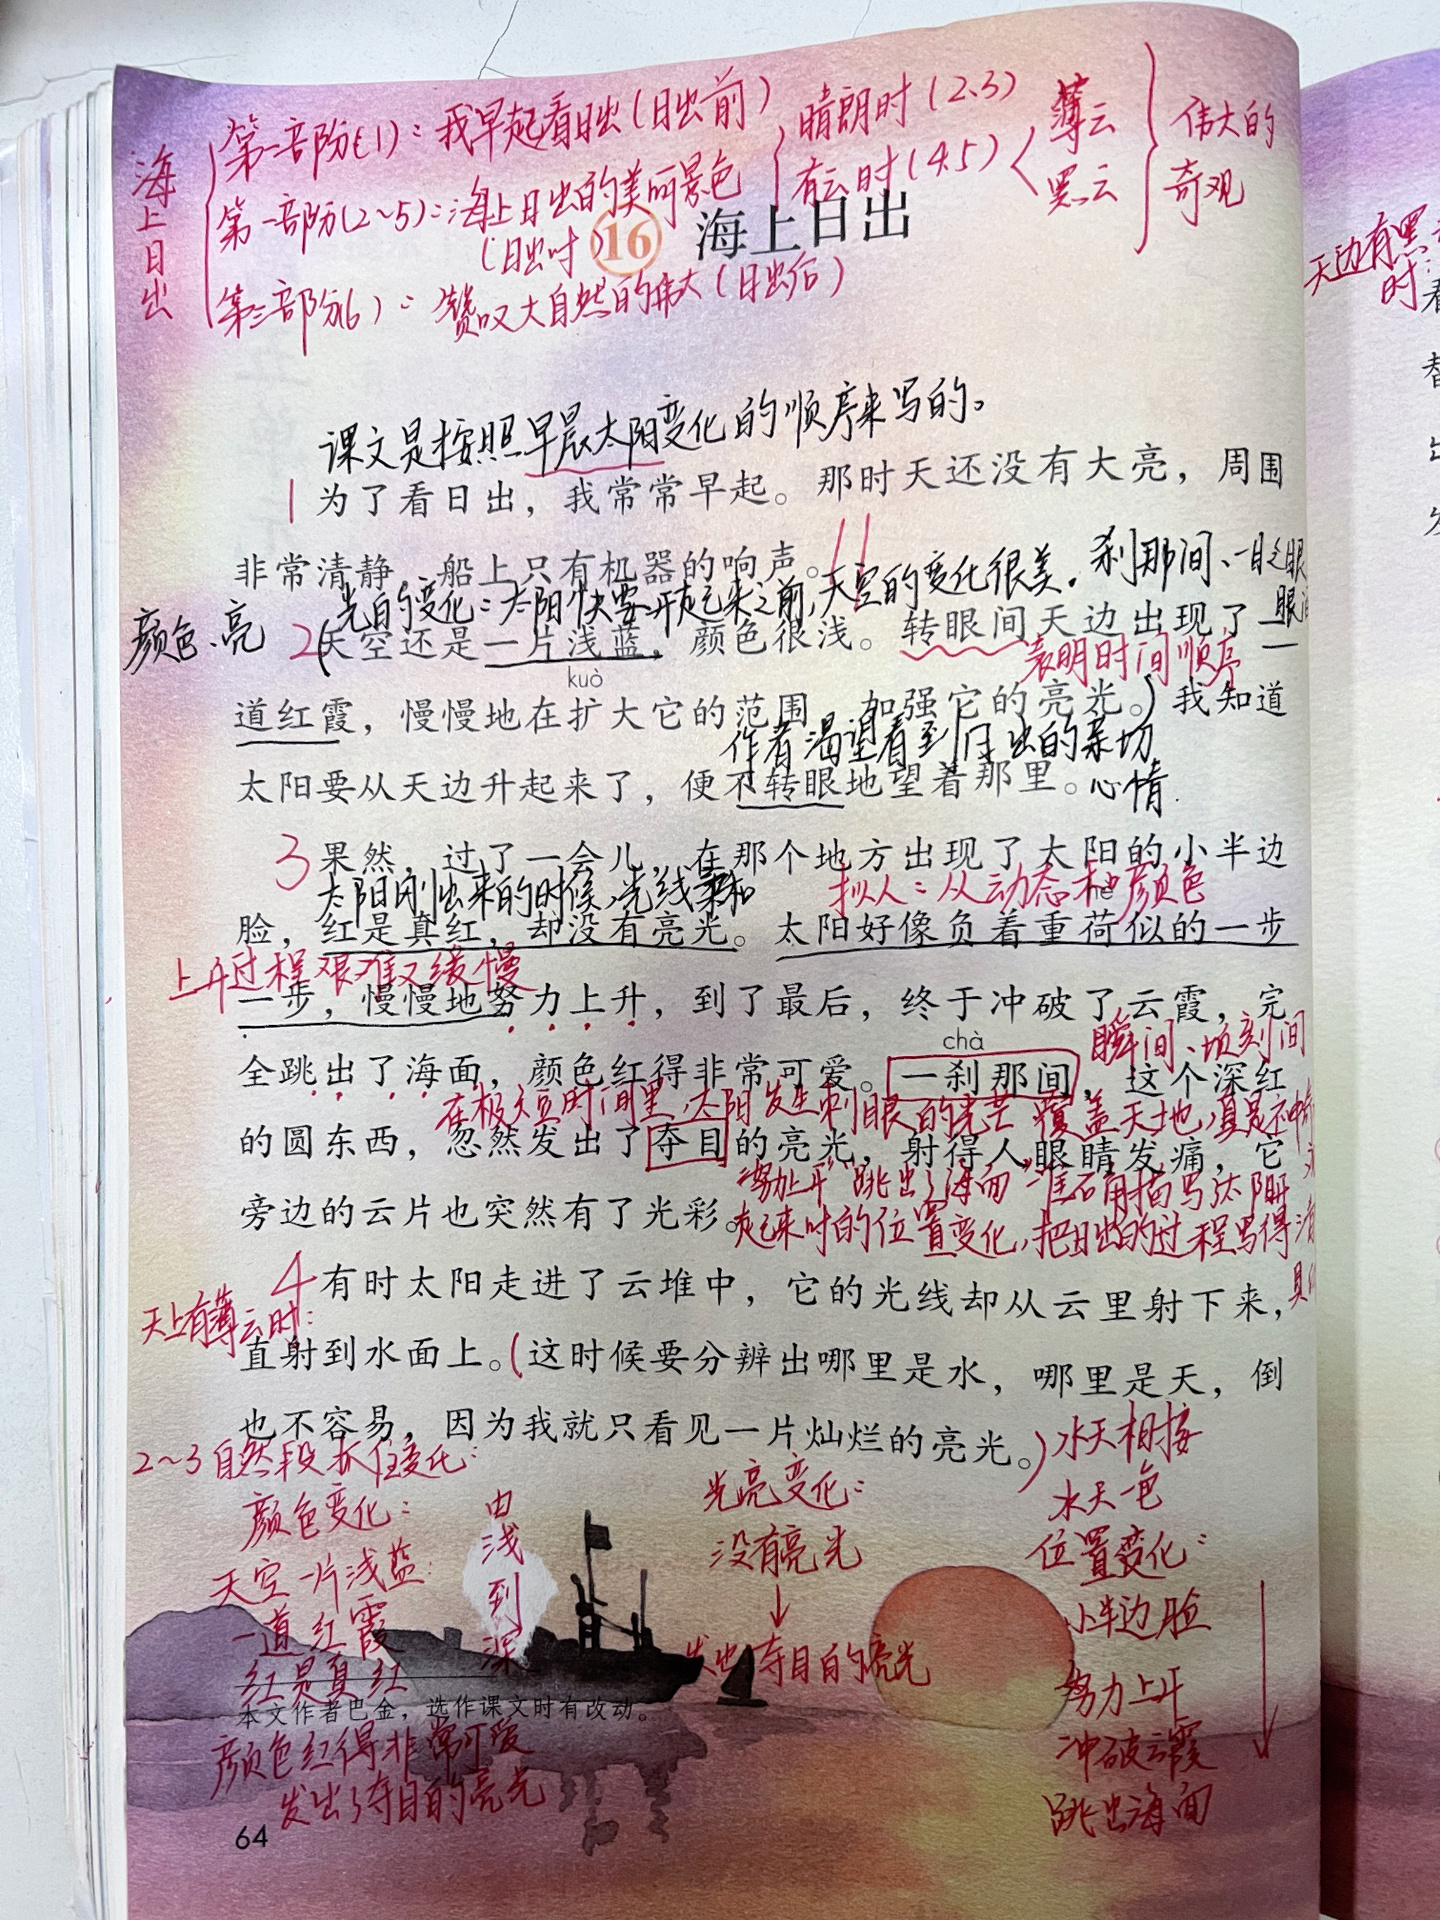 海上日出
第一部份(1)：我早起看日出(日出前)
第一部份(2~5)：海上日出的美丽景色
(日出时)
晴朗时(2.3)
有云时(4.5)
薄云
黑云
伟大的
奇观
第三部份(6)：赞叹大自然的伟大(日出后)
16 海上日出
天边有黑
时
课文是按照早晨太阳变化的顺序来写的。
1 为了看日出，我常常早起。那时天还没有大亮，周围
非常清静，船上只有机器的响声。
刹那间、一眨眼
眼
光自的变化：太阳快要升起来之前，天空的变化很美.
颜色、亮
2 (天空还是一片浅蓝，颜色很浅。转眼间天边出现了一
表明时间顺序
kuò
道红霞，慢慢地在扩大它的范围，加强它的亮光。)我知道
作者渴望看到日出的
心情.
太阳要从天边升起来了，便不转眼地望着那里。
3 果然，过了一会儿，在那个地方出现了太阳的小半边
太阳刚出来的时候，光线柔和
拟人：从动态和颜色
hè
脸，红是真红，却没有亮光。太阳好像负着重荷似的一步
上升过程艰难又缓慢
一步，慢慢地努力上升，到了最后，终于冲破了云霞，完
chà
瞬间、顷刻间
全跳出了海面，颜色红得非常可爱。一刹那间，这个深红
在极短时间里，太阳发生刺眼的光芒 覆盖天地，真是神
的圆东西，忽然发出了夺目的亮光，射得人眼睛发痛，它
“努力上升”“跳出了海面”准确描写太阳升
旁边的云片也突然有了光彩。
起来时的位置变化，把日出的过程写得
4 有时太阳走进了云堆中，它的光线却从云里射下来，
天上有薄云时：
直射到水面上。(这时候要分辨出哪里是水，哪里是天，倒
也不容易，因为我就只看见一片灿烂的亮光。)
水天相接
水天一色
2~3自然段抓住变化：
颜色变化：
由浅到深
天空一片浅蓝
一道红霞
红是真红
颜色红得非常可爱
发出了夺目的亮光
光亮变化：
没有亮光
↓
发出夺目的亮光
位置变化：
小半边脸
努力上升
冲破云霞
跳出海面
本文作者巴金，选作课文时有改动。
64